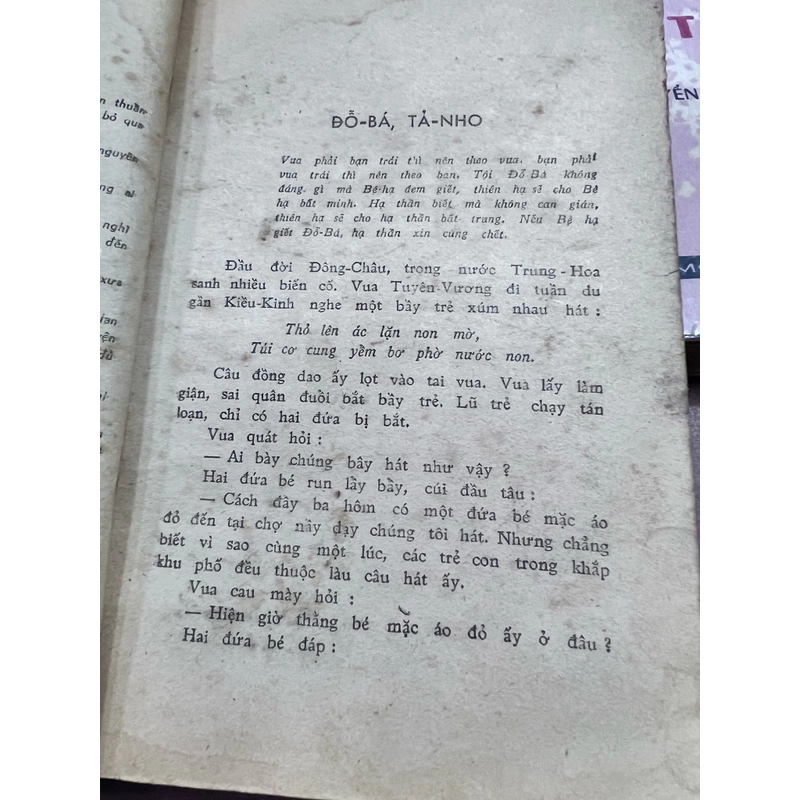 n thuần
bỏ qua
nguyên
ng
nghĩ
đến
xưa
ian
ện
đả
ĐỖ-BÁ, TẢ-NHO
Vua phải bạn trái thì nên theo vua, bạn phải
vua trái thì nên theo bạn. Tội Đỗ-Bá không
đáng gì mà Bệ-hạ đem giết, thiên hạ sẽ cho Bệ
hạ bất minh. Hạ thần biết mà không can gián,
thiên hạ sẽ cho hạ thần bất trung. Nếu Bệ hạ
giết Đỗ-Bá, hạ thần xin cùng chết.
Đầu đời Đông-Châu, trong nước Trung-Hoa
sanh nhiều biến cố. Vua Tuyên-Vương đi tuần du
gần Kiều-Kinh nghe một bầy trẻ xúm nhau hát :
Thỏ lên ác lặn non mờ,
Túi cơ cung yểm bơ phờ nước non.
Câu đồng dao ấy lọt vào tai vua. Vua lấy làm
giận, sai quân đuổi bắt bầy trẻ. Lũ trẻ chạy tán
loạn, chỉ có hai đứa bị bắt.
Vua quát hỏi :
— Ai bày chúng bây hát như vậy ?
Hai đứa bé run lẩy bẩy, cúi đầu tâu :
— Cách đây ba hôm có một đứa bé mặc áo
đỏ đến tại chợ này dạy chúng tôi hát. Nhưng chẳng
biết vì sao cùng một lúc, các trẻ con trong khắp
khu phố đều thuộc làu câu hát ấy.
Vua cau mày hỏi :
— Hiện giờ thằng bé mặc áo đỏ ấy ở đâu ?
Hai đứa bé đáp :
T
YỂN
M